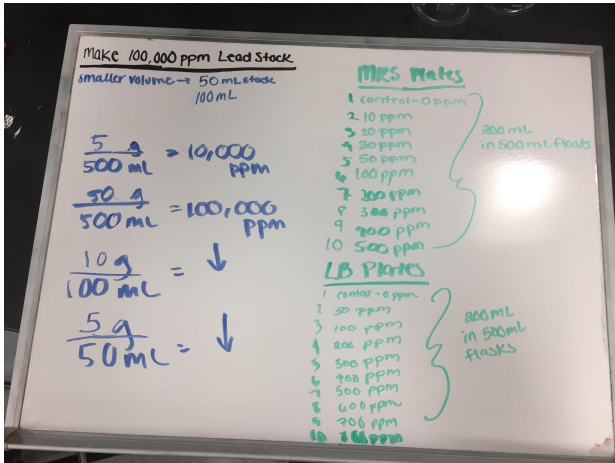 Make 100,000 ppm Lead Stock
smaller volume → 50 mL stock
100mL
5 g
500 mL
= 10,000
ppm
50 g
500 mL
= 100,000
ppm
10 g
100 mL
= ↓
5 g
50 mL
= ↓
MRS Plates
1 control - 0 ppm
2 10 ppm
3 20 ppm
4 30 ppm
5 50 ppm
6 100 ppm
7 200 ppm
8 300 ppm
9 400 ppm
10 500 ppm
200 mL
in 500 mL flasks
LB Plates
1 control - 0 ppm
2 50 ppm
3 100 ppm
4 200 ppm
5 300 ppm
6 400 ppm
7 500 ppm
8 600 ppm
9 700 ppm
10 ppm
200 mL
in 500mL
flasks